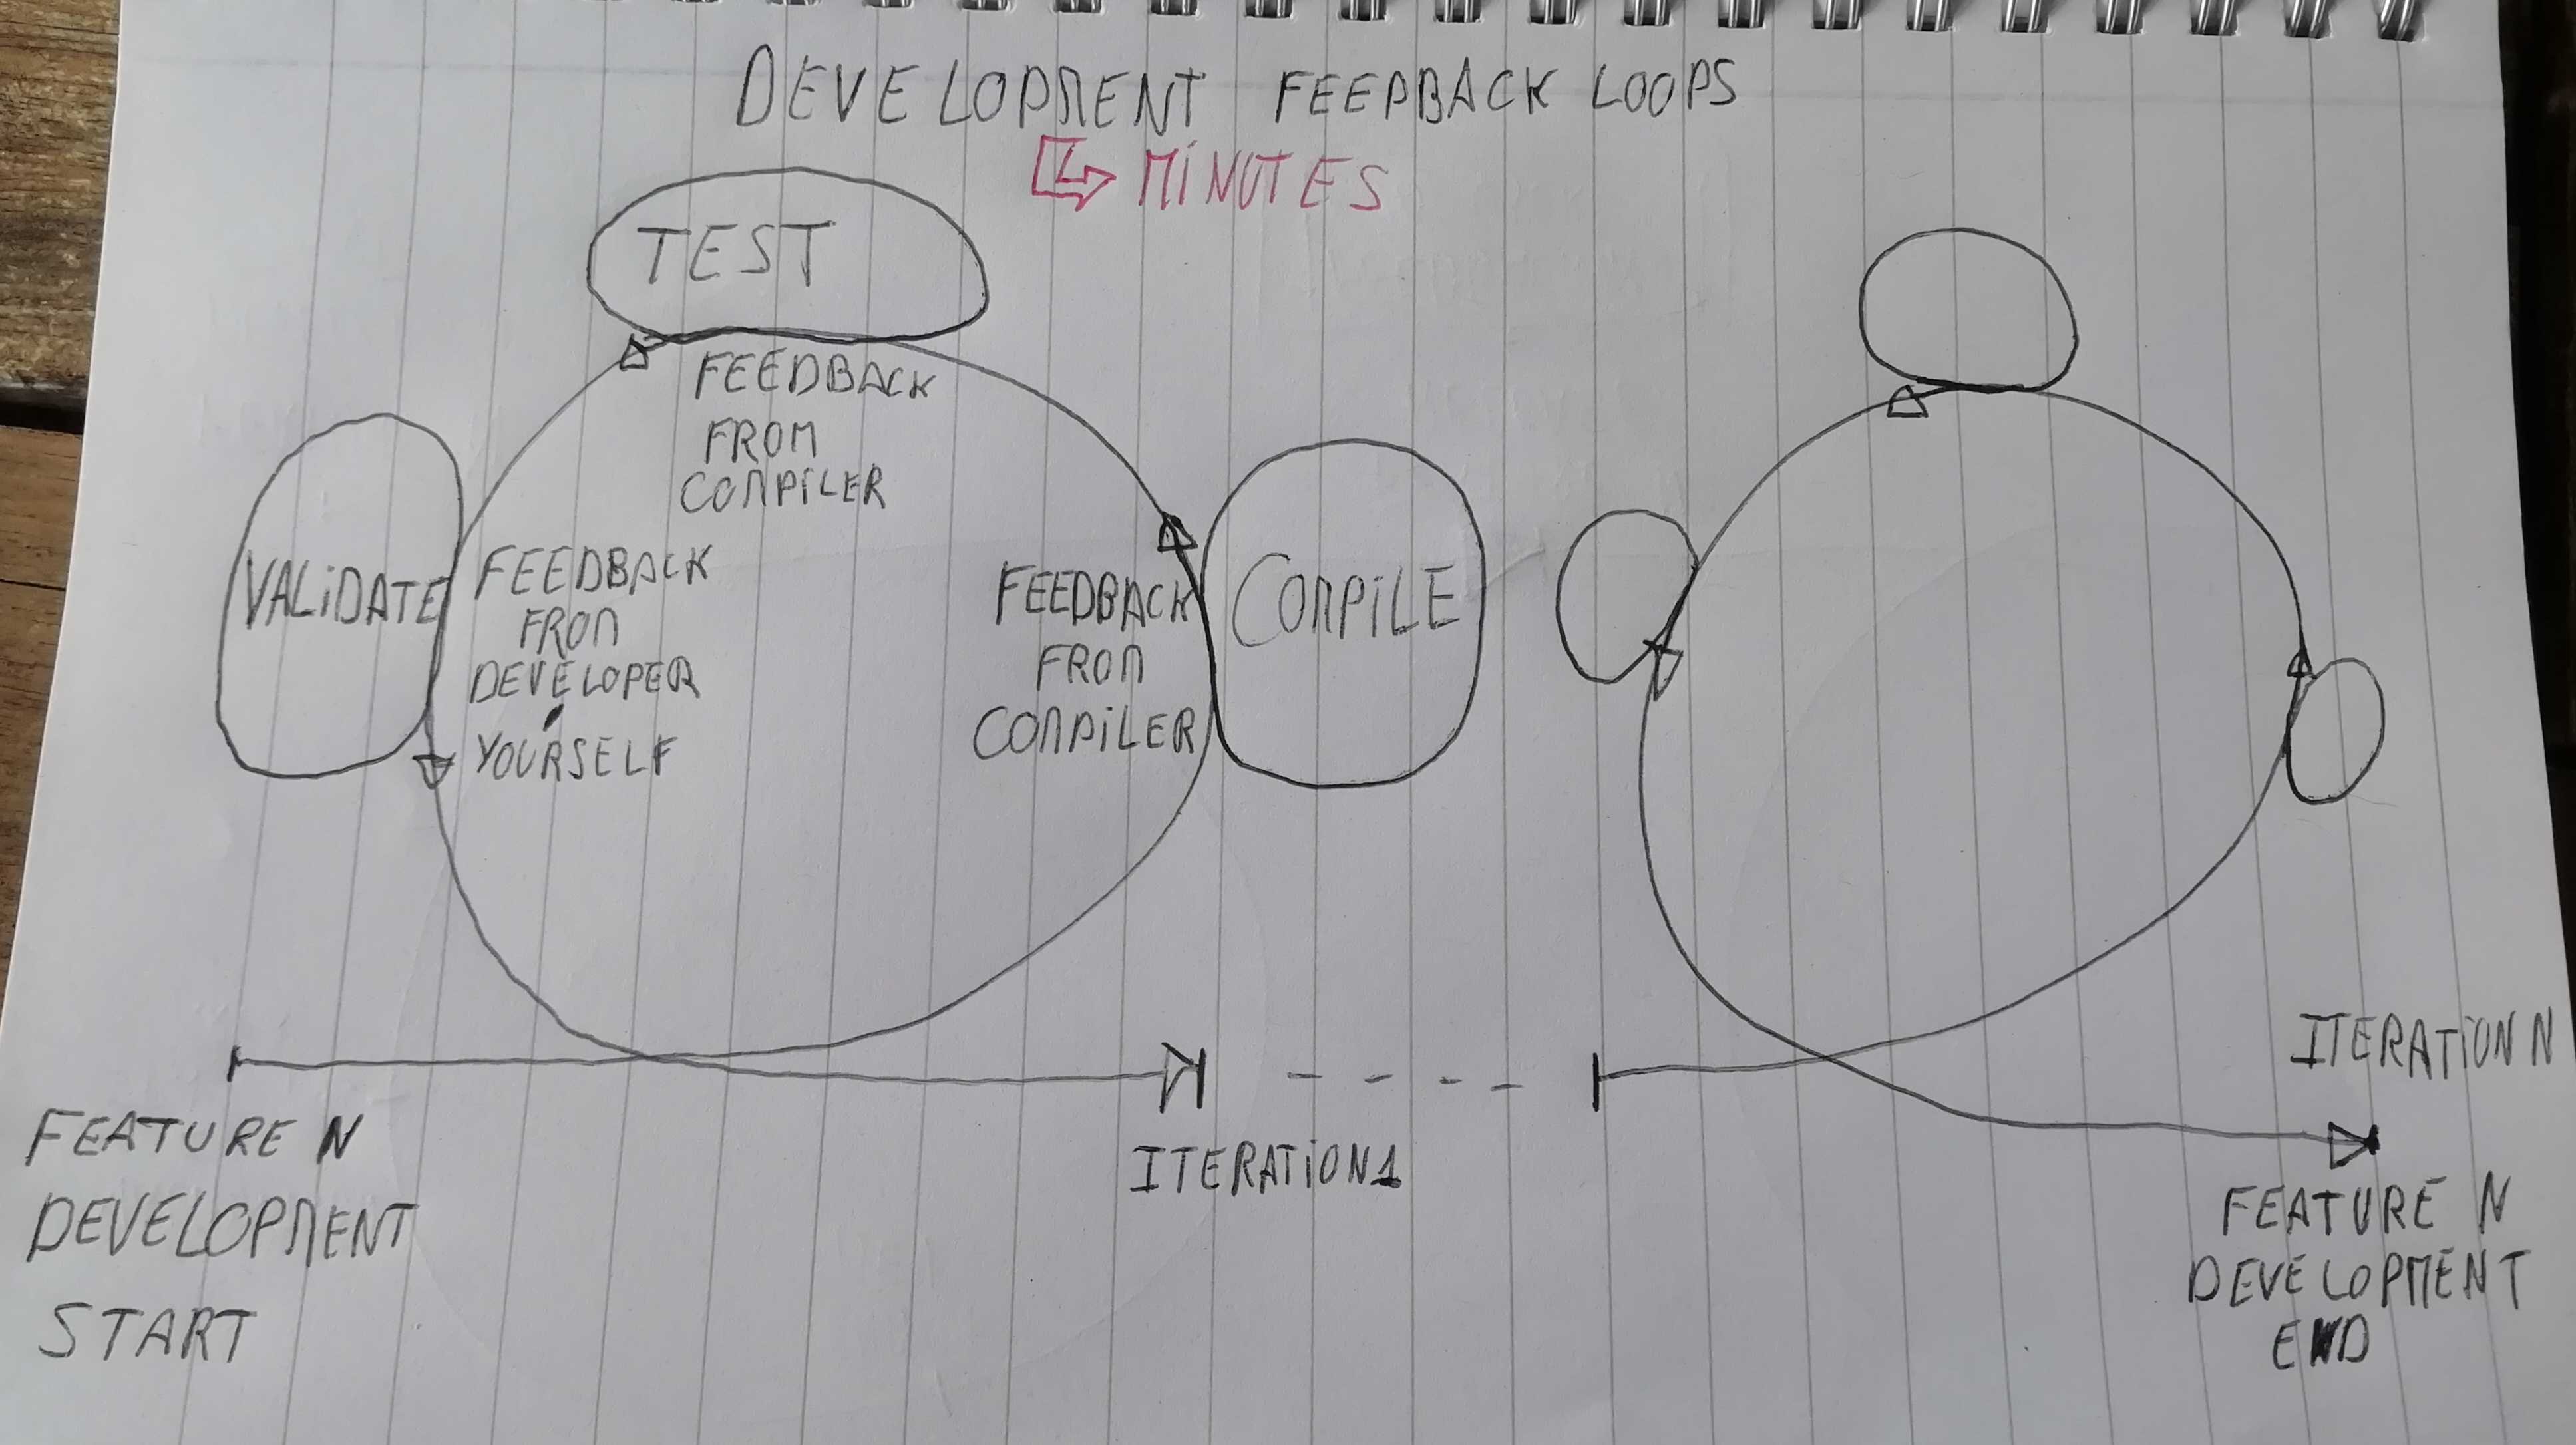 DEVELOPMENT FEEDBACK LOOPS
MINUTES
TEST
FEEDBACK
FROM
COMPILER
VALIDATE
FEEDBACK
FROM
DEVELOPER
YOURSELF
FEEDBACK
FROM
COMPILER
COMPILE
FEATURE N
DEVELOPMENT
START
ITERATION 1
ITERATION N
FEATURE N
DEVELOPMENT
END